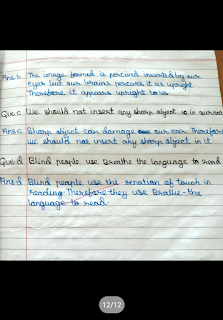 Ans.b The image formed is percived inverted by our
eyes but our brains percives it as upright
Therefore it appears upright to us.
Que c We should not insert any sharp object is in our ear
Ans c Sharp object can damage our ear. Therefore
we should not insert any sharp object in it.
Que d Blind people use Breathe the language to read
Ans d Blind people use the senation of touch in
reading. Therefore they use Brallie-the
language to read.
12/12